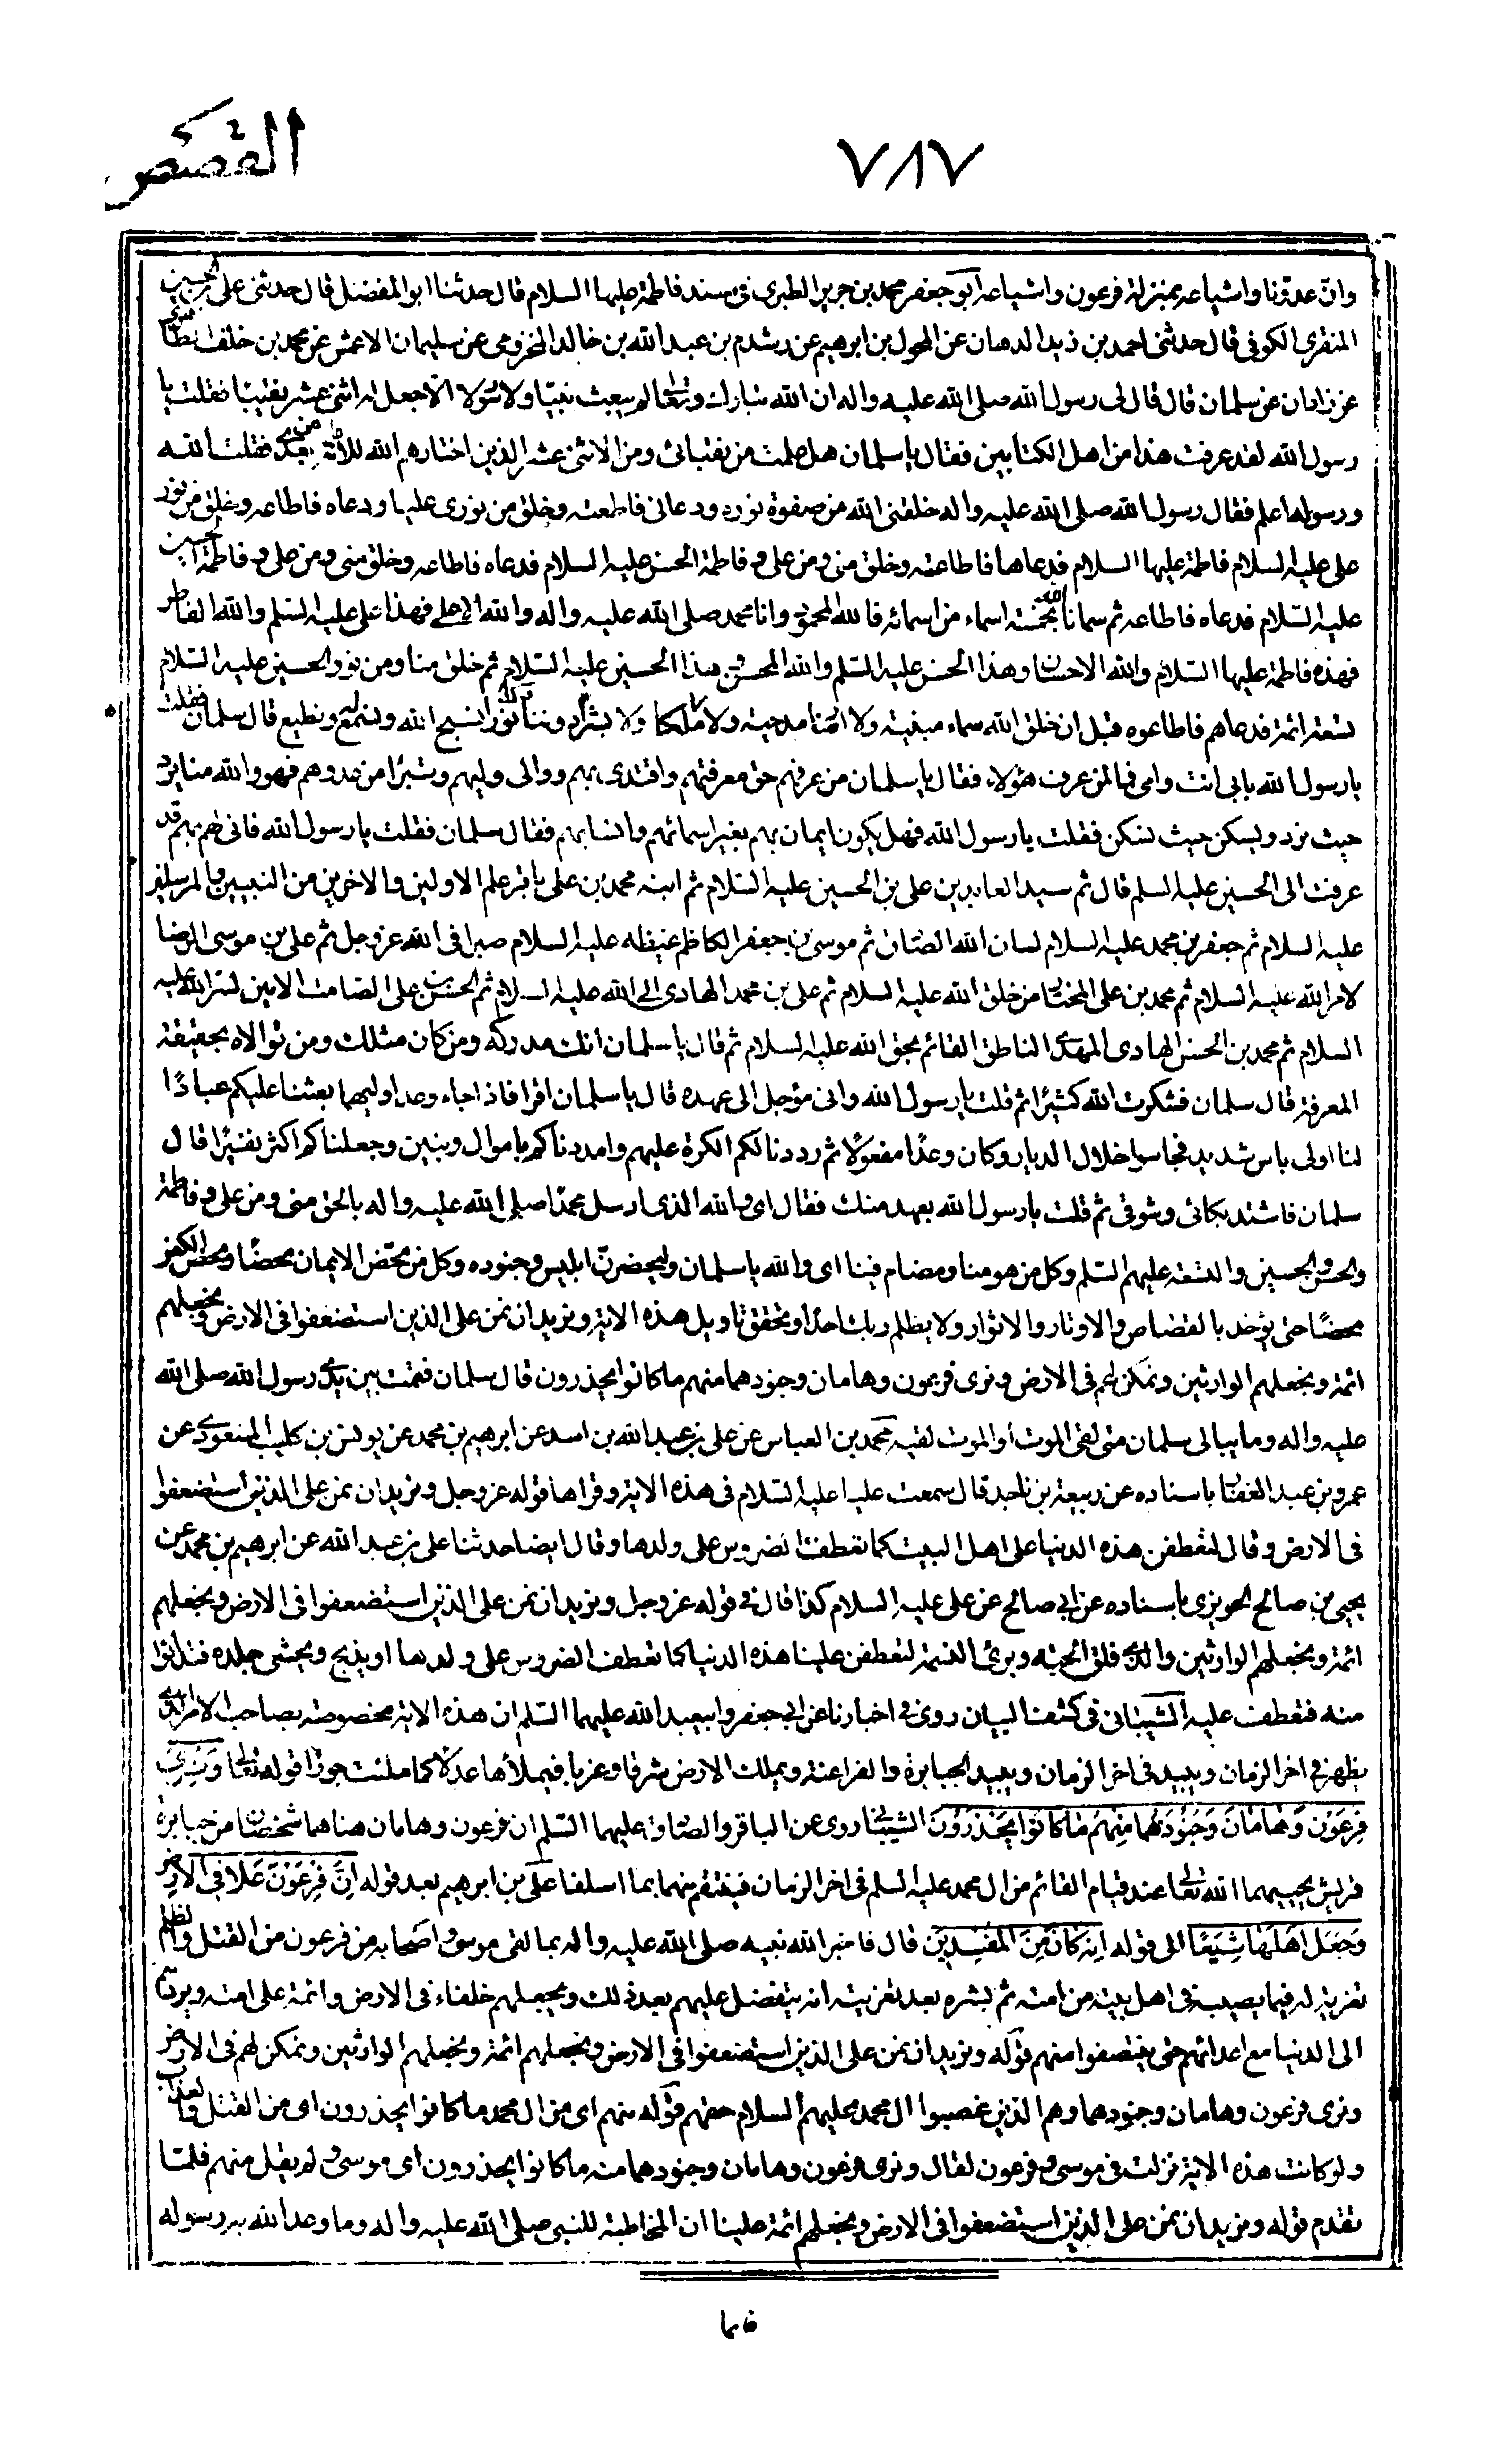 القصص
٧٨٧
وان عدونا واشياعه بمنزلة فرعون واشياعه ابو جعفر محمد بن جرير الطبري في مسند فاطمة عليها السلام قال حدثنا ابو المفضل قال حدثني علي بن الحسين
المنقري الكوفي قال حدثني احمد بن زيد الدهان عن المخول بن ابرهيم عن رشدم بن عبد الله بن خالد المخزومي عن سليمان الاعمش عن محمد بن خلف الطاطري
عن زاذان عن سلمان قال قال لي رسول الله صلى الله عليه واله ان الله تبارك وتعالى لم يبعث نبيا ولا رسولا الا جعل له اثنى عشر نقيبا فقلت يا
رسول الله لقد عرفت هذا من اهل الكتابين فقال يا سلمان هل علمت من نقبائي ومن الاثنى عشر الذين اختارهم الله للامة من بعدي فقلت الله
ورسوله اعلم فقال رسول الله صلى الله عليه واله خلقني الله من صفوة نوره ودعاني فاطعته وخلق من نوري عليا ودعاه فاطاعه وخلق من نور
علي عليه السلام فاطمة عليها السلام فدعاها فاطاعته وخلق مني ومن علي وفاطمة الحسن عليه السلام فدعاه فاطاعه وخلق مني ومن علي وفاطمة الحسين
عليه السلام فدعاه فاطاعه ثم سمانا الله بخمسة اسماء من اسمائه فالله المحمود وانا محمد صلى الله عليه واله والله الاعلى فهذا علي عليه السلم والله الفاطر
فهذه فاطمة عليها السلام والله الاحسان وهذا الحسن عليه السلم والله المحسن وهذا الحسين عليه السلام ثم خلق منا ومن نور الحسين عليه السلام
تسعة ائمة فدعاهم فاطاعوه قبل ان خلق الله سماء مبنية ولا ارضا مدحية ولا ملكا ولا بشرا دوننا نورا نسبح الله ونسمع له ونطيع قال سلمان فقلت
يا رسول الله بابي انت وامي فما لمن عرف هؤلاء فقال يا سلمان من عرفهم حق معرفتهم واقتدى بهم ووالى وليهم وتبرأ من عدوهم فهو والله منا يرد
حيث نرد ويسكن حيث نسكن فقلت يا رسول الله فهل يكون ايمان بهم بغير اسمائهم وانسابهم فقال سلمان فقلت يا رسول الله فانى لهم بهم قد
عرفت الى الحسين عليه السلم قال ثم سيد العابدين علي بن الحسين عليه السلام ثم ابنه محمد بن علي باقر علم الاولين والاخرين من النبيين والمرسلين
عليه السلام ثم جعفر بن محمد عليه السلام لسان الله الصادق ثم موسى بن جعفر الكاظم غيظه عليه السلام صبرا في الله عز وجل ثم علي بن موسى الرضا
لامر الله عليه السلام ثم محمد بن علي المختار من خلق الله عليه السلام ثم علي بن محمد الهادي الى الله عليه السلام ثم الحسن بن علي الصامت الامين لسر الله عليه
السلام ثم محمد بن الحسن الهادي المهدي الناطق القائم بحق الله عليه السلام ثم قال يا سلمان انك مدركه ومن كان مثلك ومن توالاه بحقيقة
المعرفة قال سلمان فشكرت الله كثيرا ثم قلت يا رسول الله واني مؤجل الى عهده قال يا سلمان اقرا فاذا جاء وعد اوليهما بعثنا عليكم عبادا
لنا اولى باس شديد فجاسوا خلال الديار وكان وعدا مفعولا ثم رددنا لكم الكرة عليهم وامددناكم باموال وبنين وجعلناكم اكثر نفيرا قال
سلمان فاشتد بكائي وشوقي ثم قلت يا رسول الله بعهد منك فقال اي والله الذي ارسل محمدا صلى الله عليه واله بالحق مني ومن علي وفاطمة
والحسن والحسين والتسعة عليهم السلم وكل من هو منا ومضام فينا اي والله يا سلمان وليحضرن ابليس وجنوده وكل من محض الايمان محضا ومحض الكفر
محضا حتى يؤخذ بالقصاص والاوتار والاثوار ولا يظلم ربك احدا ويحقق تاويل هذه الاية ونريد ان نمن على الذين استضعفوا في الارض ونجعلهم
ائمة ونجعلهم الوارثين ونمكن لهم في الارض ونرى فرعون وهامان وجنودهما منهم ما كانوا يحذرون قال سلمان فقمت بين يدي رسول الله صلى الله
عليه واله وما يبالي سلمان متى لقي الموت او الموت لقيه محمد بن العباس عن علي بن عبد الله بن اسد عن ابرهيم بن محمد عن يونس بن كليب المسعودي عن
عمرو بن عبد الغفار باسناده عن ربيعة بن ناجد قال سمعت عليا عليه السلام في هذه الاية وقراها قوله عز وجل ونريد ان نمن على الذين استضعفوا
في الارض وقال لتعطفن هذه الدنيا على اهل البيت كما تعطف الضروس على ولدها وقال ايضا حدثنا علي بن عبد الله عن ابرهيم بن محمد عن
يحيى بن صالح الحويزي باسناده عن ابي صالح عن علي عليه السلام كذا قال في قوله عز وجل ونريد ان نمن على الذين استضعفوا في الارض ونجعلهم
ائمة ونجعلهم الوارثين والذي فلق الحبة وبرئ النسمة لتعطفن علينا هذه الدنيا كما تعطف الضروس على ولدها او يذبح ويحشى جلده فتدنوا
منه فتعطف عليه الشيباني في كشف البيان روى في اخبارنا عن ابي جعفر وابيعبد الله عليهما السلم ان هذه الاية مخصوصة بصاحب الامر الذي
يظهر في اخر الزمان ويبيد في اخر الزمان ويبيد الجبابرة والفراعنة ويملك الارض شرقا وغربا فيملأها عدلا كما ملئت جورا قوله تعالى ونرى
فرعون وهامان وجنودهما منهم ما كانوا يحذرون الشيباني روى عن الباقر والصادق عليهما السلم ان فرعون وهامان هنا هما شخصان من جبابرة
قريش يحييهما الله تعالى عند قيام القائم من ال محمد عليه السلم في اخر الزمان فينتقم منهما بما اسلفا علي بن ابرهيم بعد قوله ان فرعون علا في الارض
وجعل اهلها شيعا الى قوله انه كان من المفسدين قال فاخبر الله نبيه صلى الله عليه واله بما لقى موسى واصحابه من فرعون من القتل والظلم
تعزية له فيما يصيبه في اهل بيته من امته ثم بشره بعد تعزيته انه يتفضل عليهم بعد ذلك ويجعلهم خلفاء في الارض وائمة على امته ويردهم
الى الدنيا مع اعدائهم حتى ينتصفوا منهم قوله ونريد ان نمن على الذين استضعفوا في الارض ونجعلهم ائمة ونجعلهم الوارثين ونمكن لهم في الارض
ونرى فرعون وهامان وجنودهما وهم الذين غصبوا ال محمد عليهم السلام حقهم قوله منهم اي من ال محمد ما كانوا يحذرون اي من القتل والعذاب
ولو كانت هذه الاية نزلت في موسى وفرعون لقال ونرى فرعون وهامان وجنودهما منه ما كانوا يحذرون اي موسى ولم يقل منهم فلما
تقدم قوله ونريد ان نمن على الذين استضعفوا في الارض ونجعلهم ائمة علمنا ان المخاطبة للنبي صلى الله عليه واله وما وعد الله به رسوله
فانما